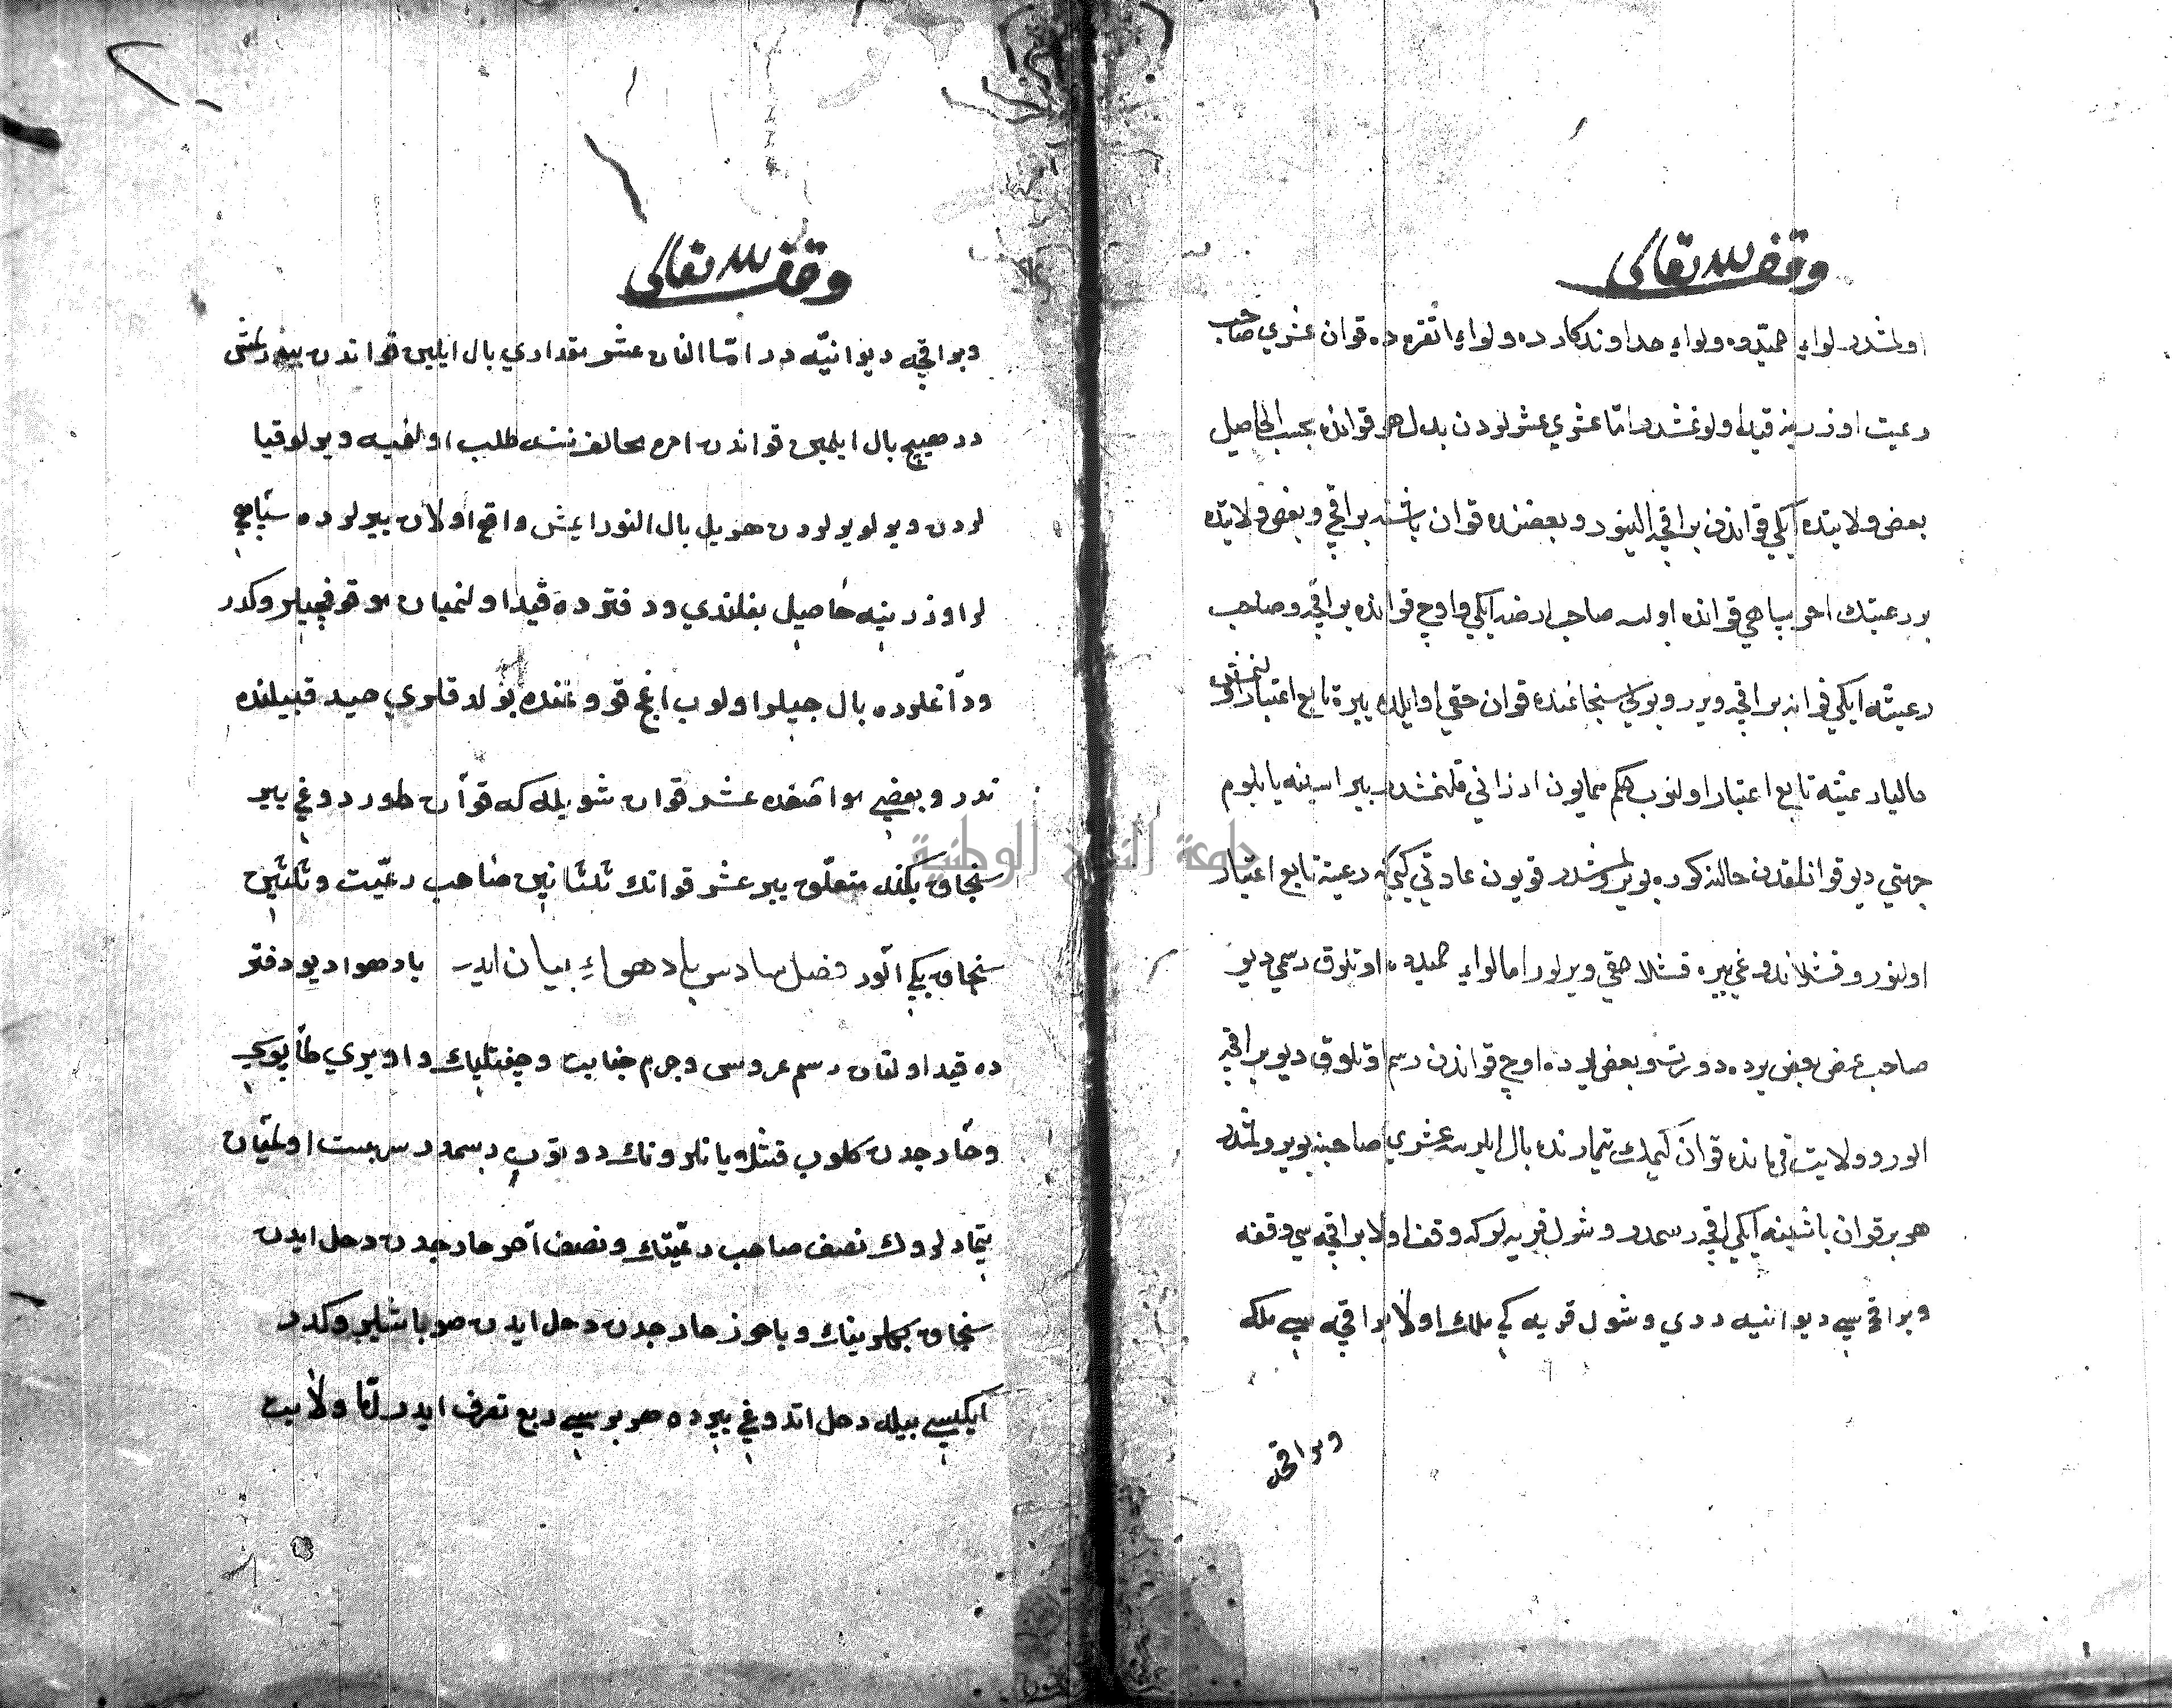 وقف لله تعالى
اولنمشدر لواء حميدده ولواء خداوندكارده ولواء انقره ده قوان عشري صاحب
رعيت اوزرينه قيد اولونمشدر امّا عشري عشرلردن بدل هر قوانده بحسب الحاصيل
بعض ولايتده ايكي قواندن بر اقچه النور وبعضنده قوان باشنه بر اقچه وبعض ولايتده
بر رعيتك اخر سپاهي قوانده اولسه صاحب ارضه ايكي واوچ قوانده بر اقچه وصاحب
رعيته ايكي قوانه بر اقچه ويرر وبولي سنجاغنده قوان حقي اوايلده ييره تابع اعتبار اولنمشدر
حاليا رعيته تابع اعتبار اولنوب حكم همايون ارزاني قلنمشدر ييراسينه يايلوم
جهتي ديو قوانلقدن حالنه كوره بويرلمشدر قويون عادتي كبي كه رعيته تابع اعتبار
اولنور وقشلاندوغي ييره قشلا حقي ويرلور اما لواء حميدده اوتلوق رسمي ديو
صاحب عرض بعض يرده دورت وبعض يرده اوچ قواندن رسم اوتلوق ديو بر اقچه
الور وولايت قرمانده قوان كيمك تيمارنده بال ايلرسه عشري صاحبنه بويورلمشدر
هر بر قوان باشينه ايكي اقچه رسمدر وشول قريه لركه وقف اولا بر اقچه سي وقفه
وبر اقچه سي ديوانيه در دي وشول قريه كي ملك اولا بر اقچه سي ملكه
وبر اقچه
وقف لله تعالى
وبر اقچه ديوانيّه در امّا الفان عشر مقداري بال ايلين قواندن بيورلمش
در هيچ بال ايلمين قواندن امره مخالف نسنه طلب اولنميه وير لوقيا
لردن وبولويولردن هر ييل بال النور ايمش واقع اولان ييرلرده سپاهي
لر اوزرينه حاصيل بغلندي ودفترده قيد اولنميان موقوفجيلر وكدر
وداغلرده بال جيلر اولوب اغج قووغنده بولدقلري صيد قبيلنده
ندر وبعضي مواضعده عشر قوان شويلمه كه قوان طوردوغي يير
سنجاق بكنه متعلّق يير عشر قوانك ثلثانين صاحب رعيّت وثلثين
سنجاق بكي الور فصل سادس بادهواءِ بيان ايدر بادهوا ديو دفتر
ده قيد اولنان رسم عروسى وجرم جنايت وچفتلك وداويري طاپوسي
وخارجدن كلوب قشله يانلرونك دوتوب رسمدر سربست اولميان
تيمارلروك نصف صاحب رعيّتك ونصف آخر خارجدن دخل ايدن
سنجاق بكلرينك وياخوذ خارجدن دخل ايدن صوباشيلر وكدر
ايكيسي بيله دخل اتدوغي ييرده هر برسي ربع تصرف ايدر امّا ولايت